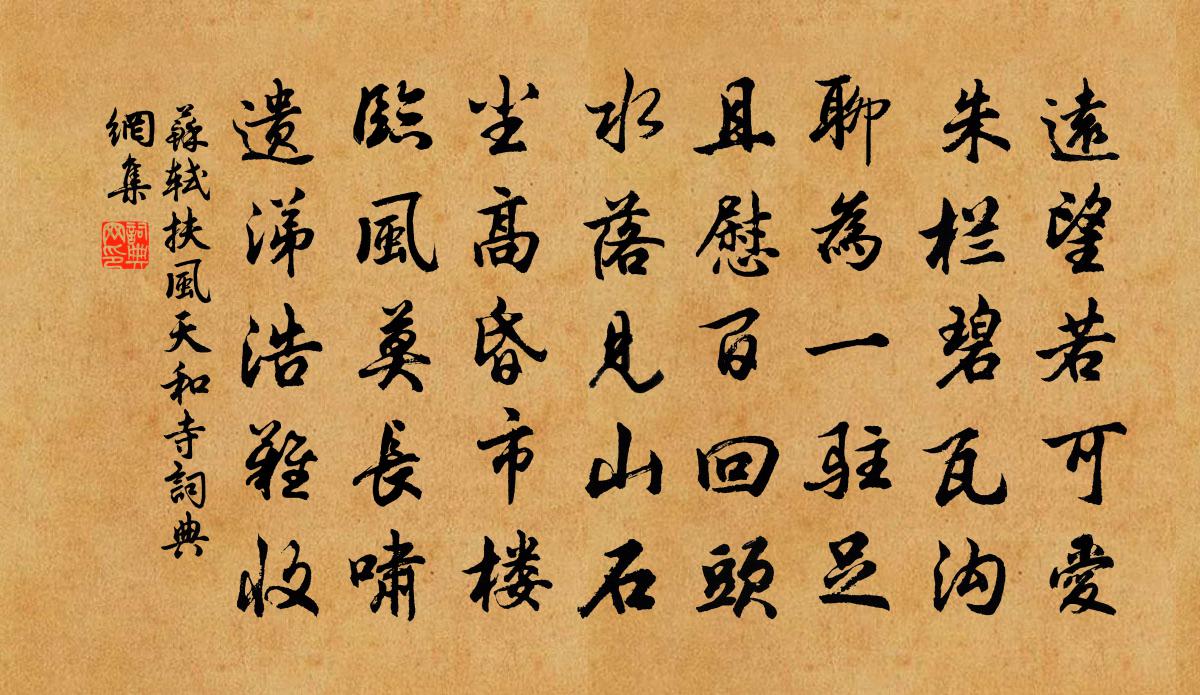 遠望若可愛
朱栏碧瓦沟
聊為一駐足
且慰百回頭
水落見山石
尘高昏市楼
臨風莫長嘯
遺涕浩難收
蘇軾扶風天和寺詞典
網集
詞典
网印